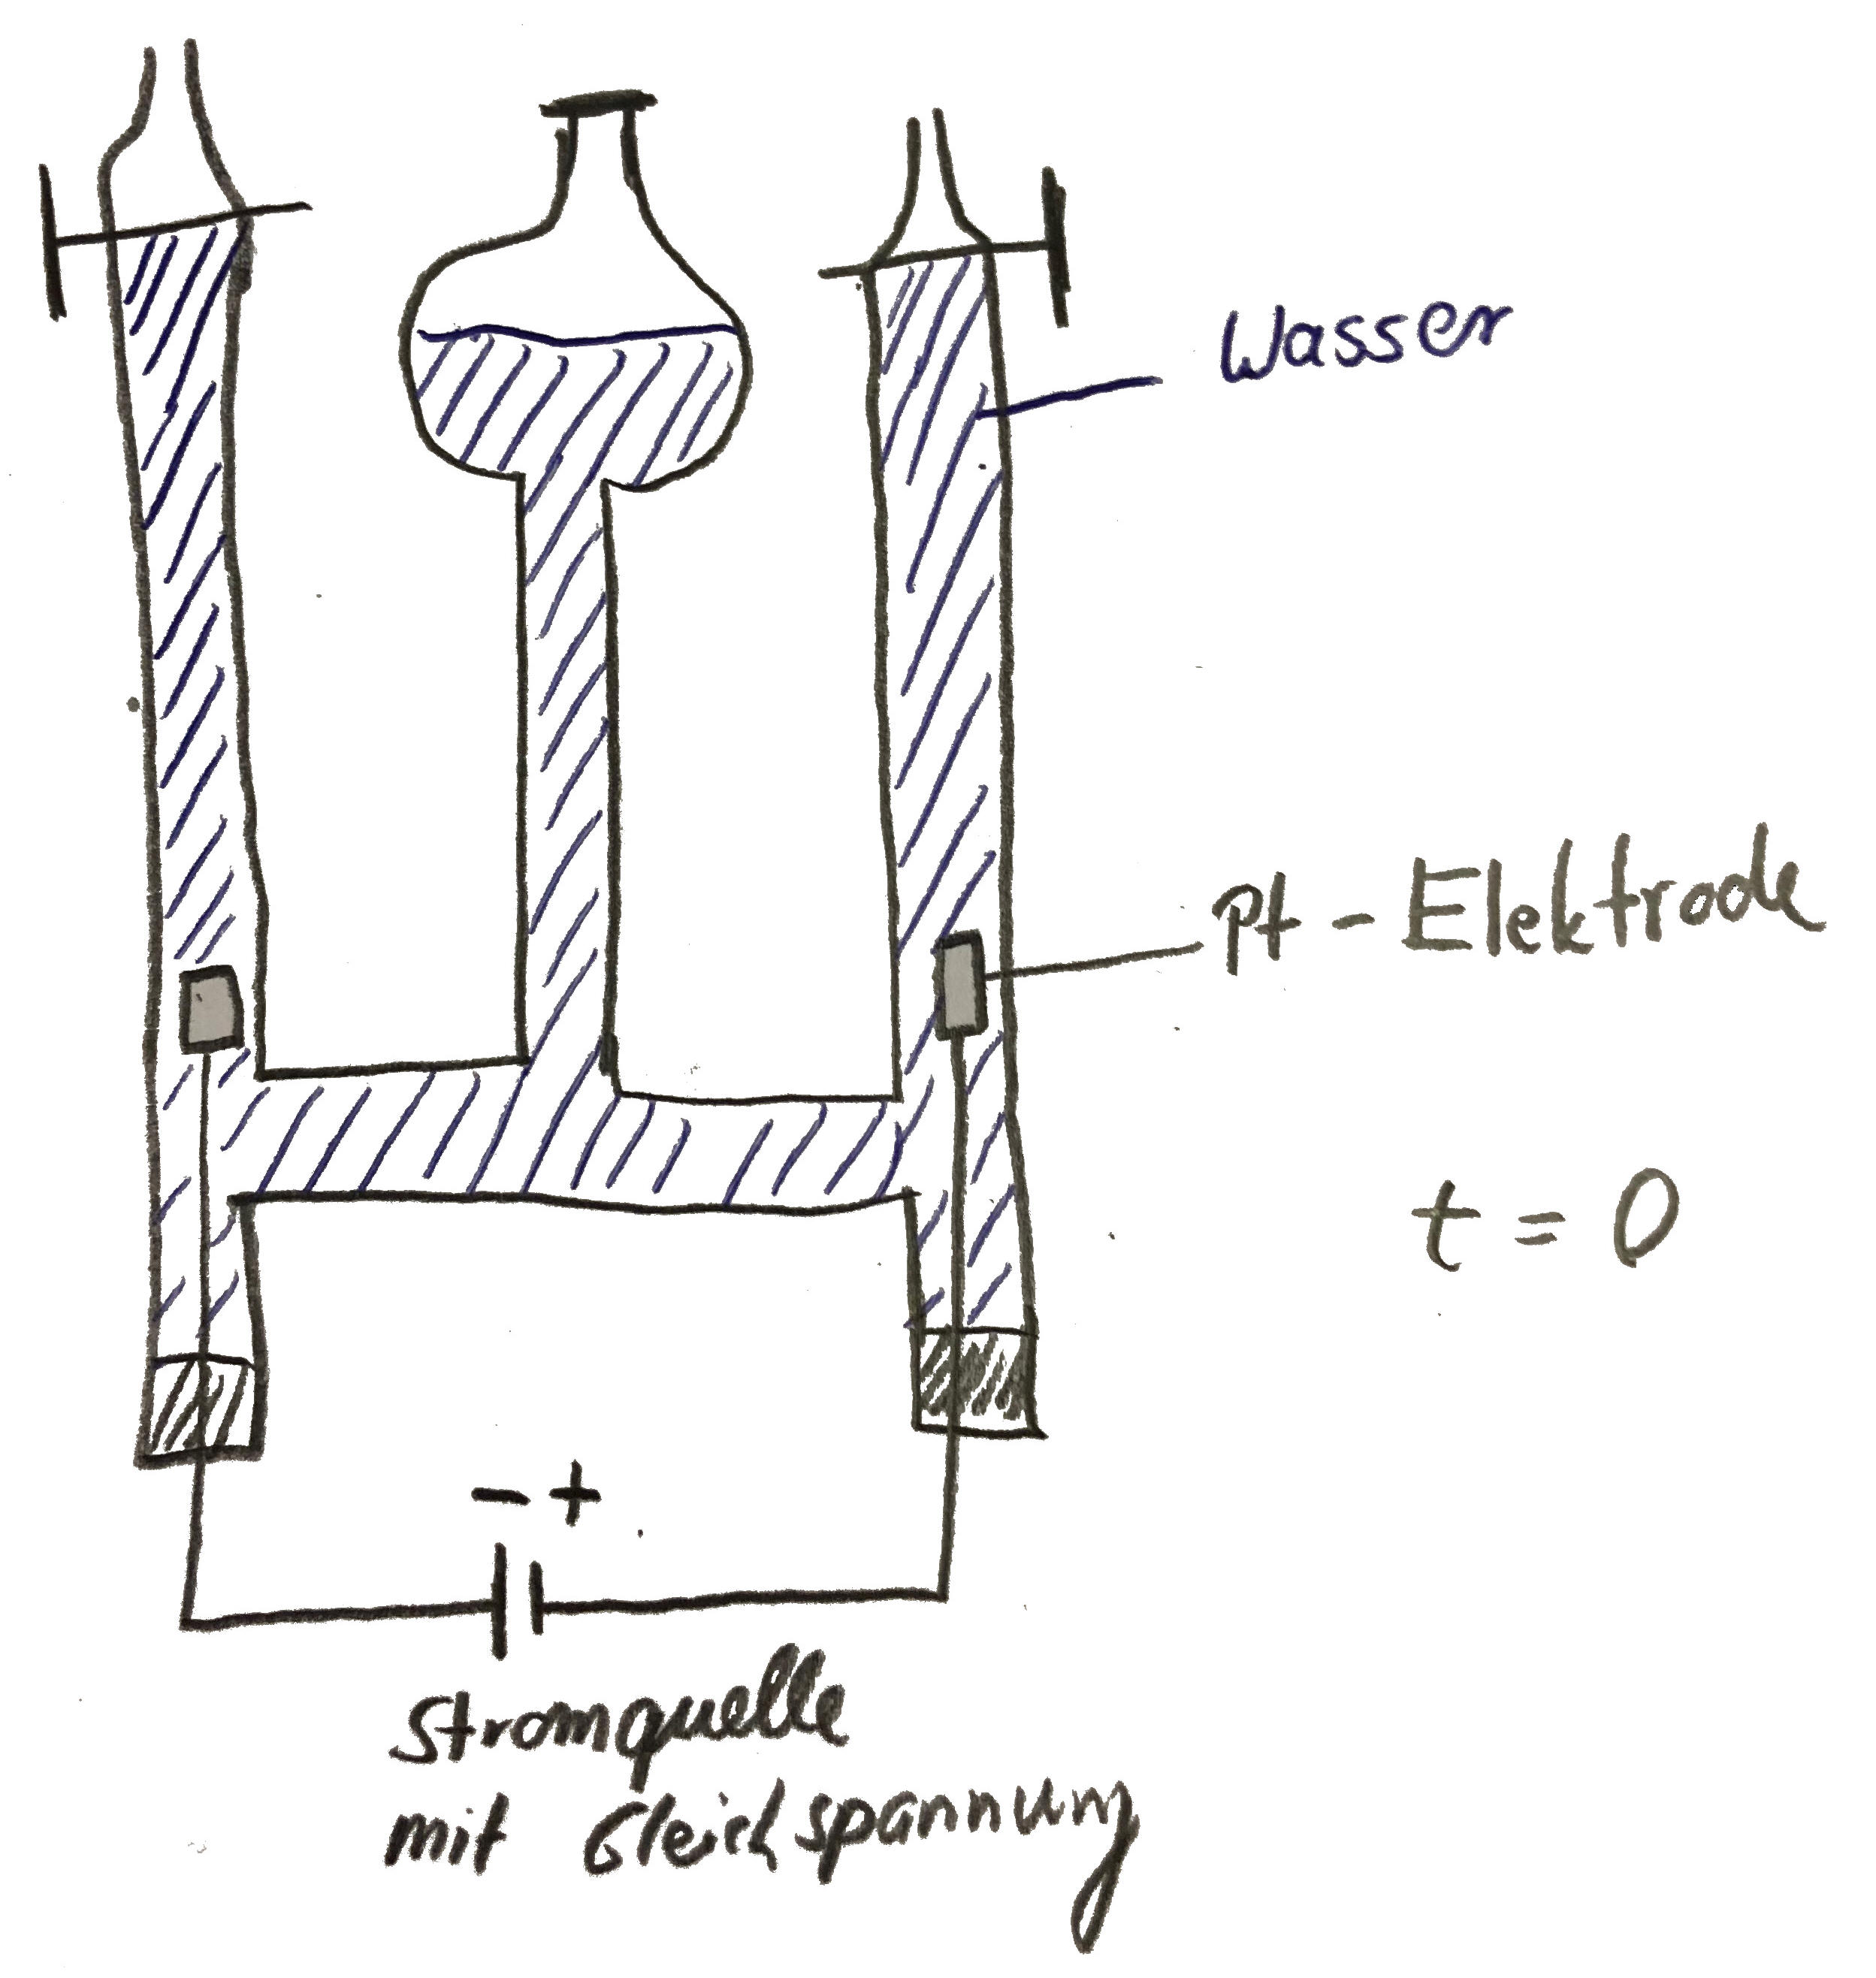 Wasser
Pt - Elektrode
t = 0
- +
Stromquelle
mit Gleichspannung